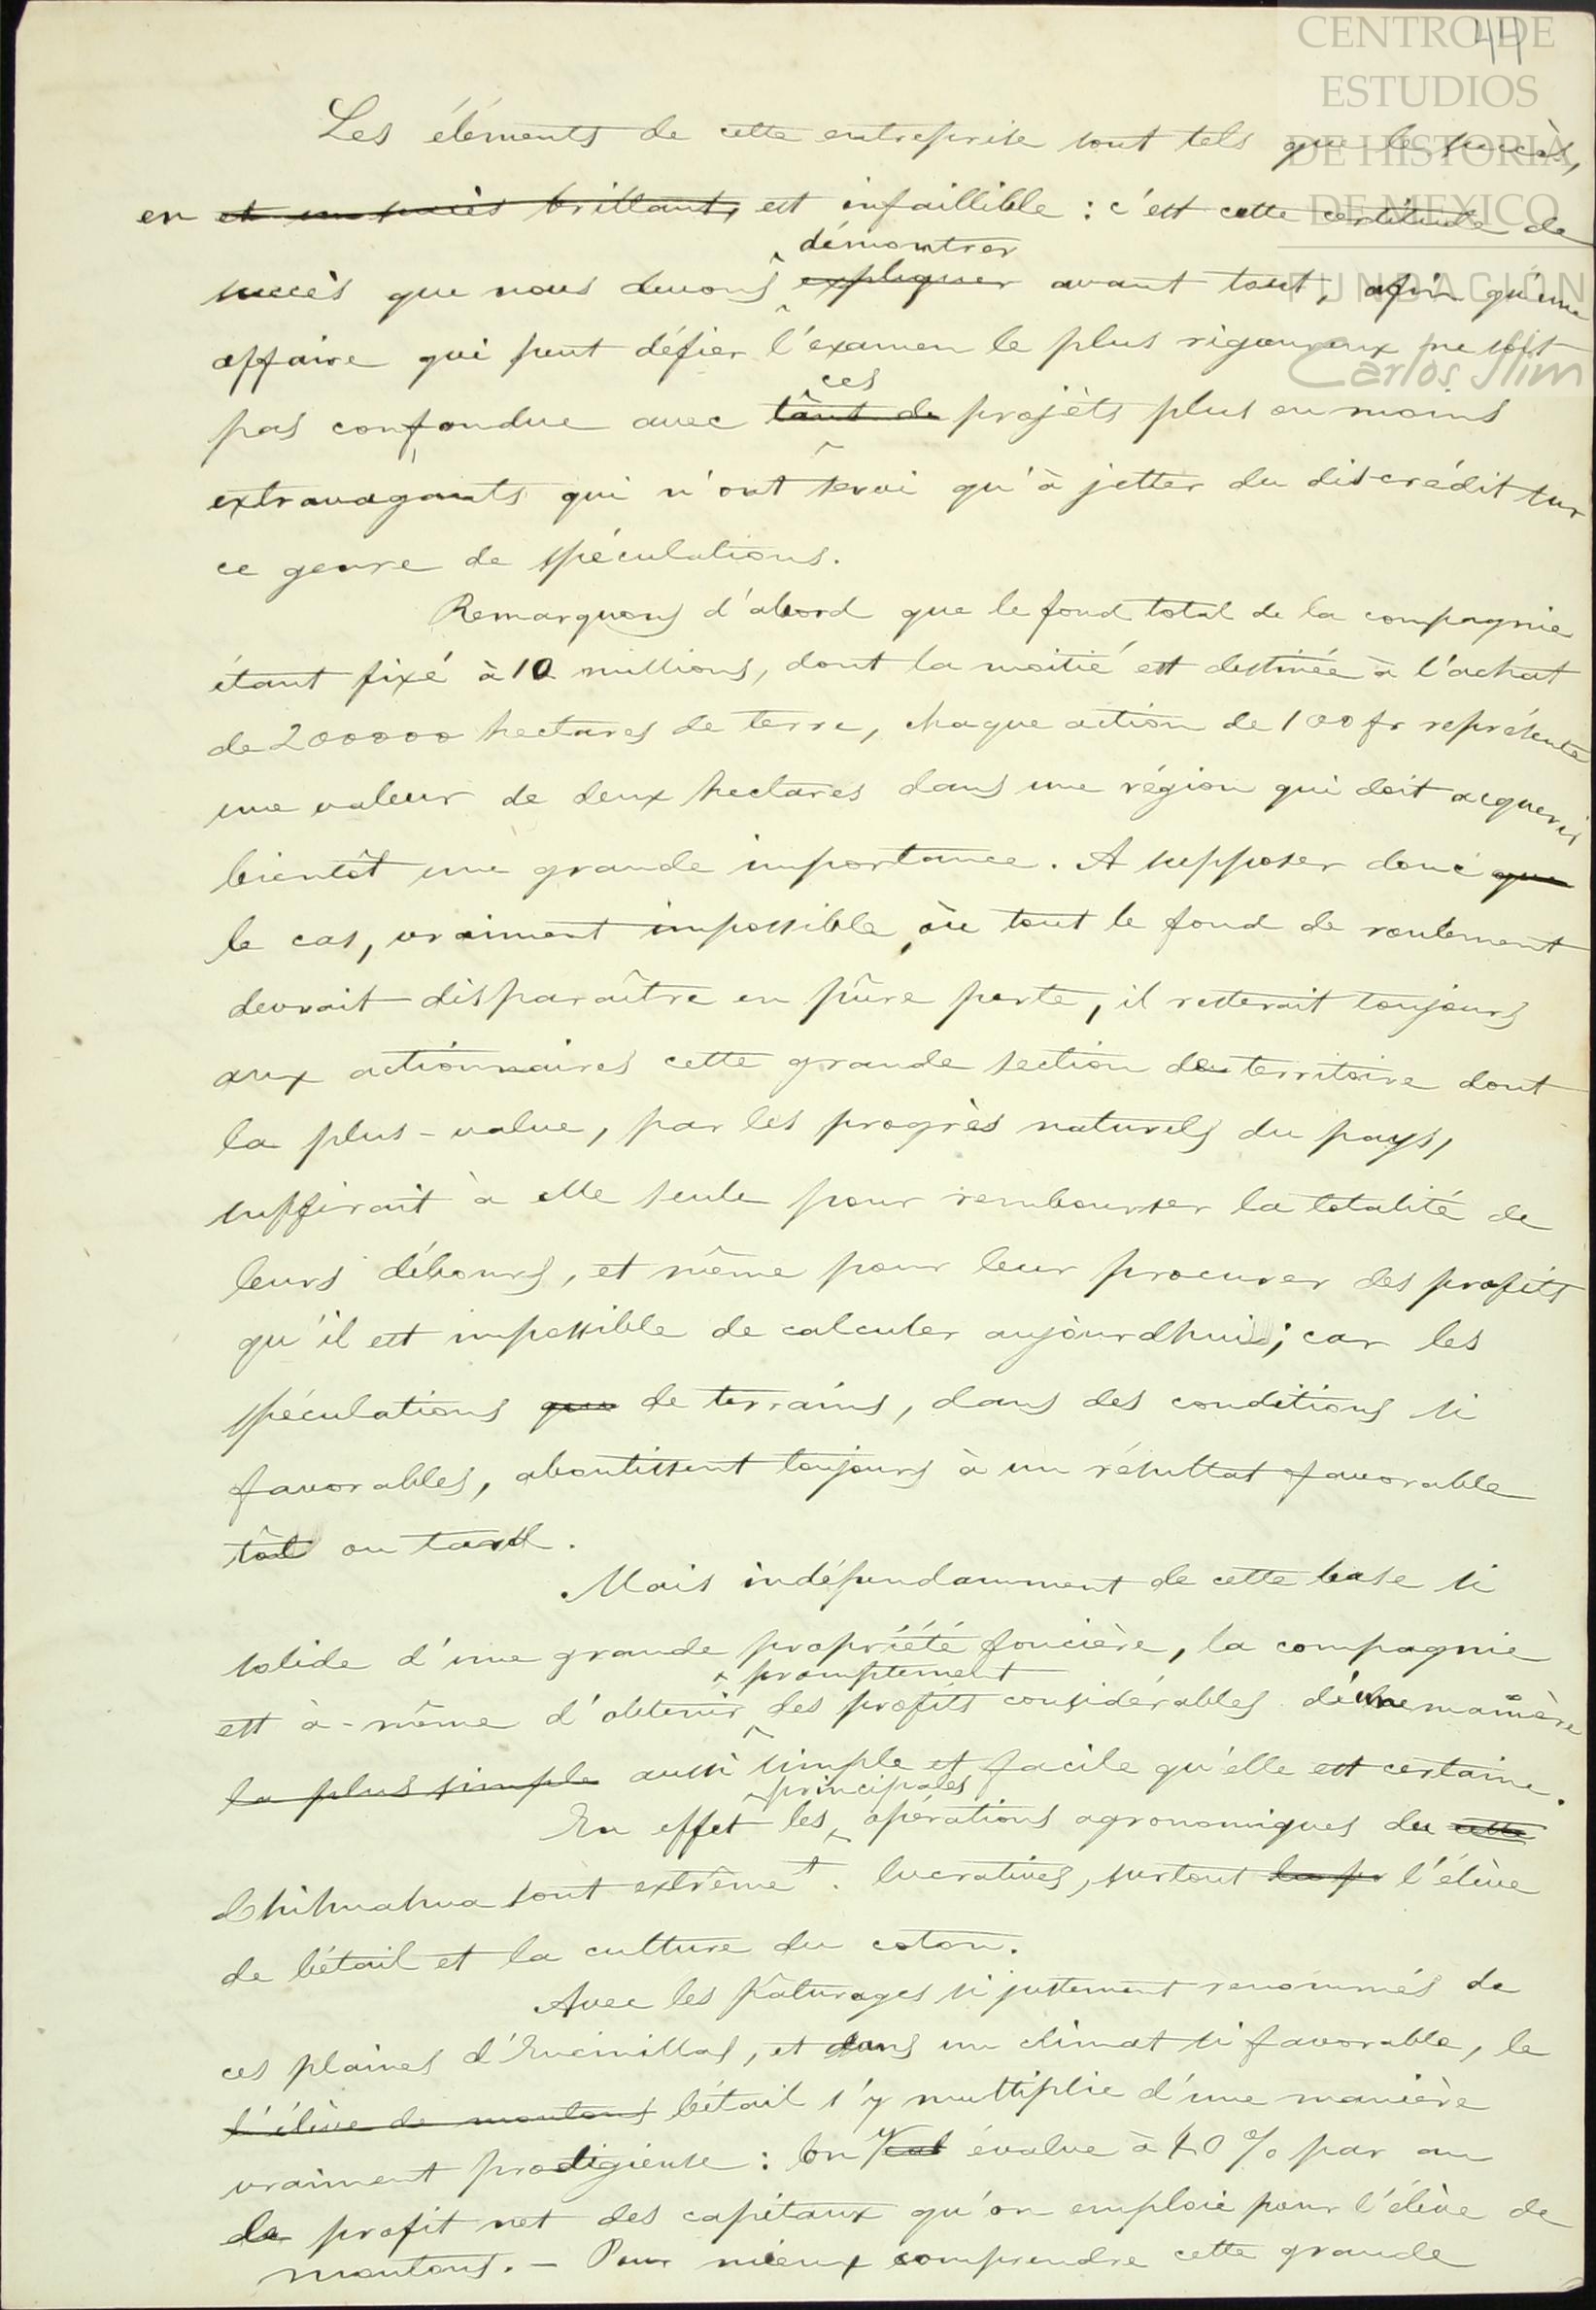 CENTRO DE
ESTUDIOS
DE HISTORIA
DE MEXICO
FUNDACIÓN
Carlos Slim
44
Les éléments de cette entreprise sont tels que le succès,
en et un succès brillant, est infaillible : c'est cette certitude de
démontrer
succès que nous devons expliquer avant tout, afin qu'une
affaire qui peut défier l'examen le plus rigoureux ne soit
ces
pas confondue avec tant de projèts plus ou moins
extravagants qui n'ont servi qu'à jetter du discrédit sur
ce genre de spéculations.
Remarquons d'abord que le fond total de la compagnie
étant fixé à 10 millions, dont la moitié est destinée à l'achat
de 200000 hectares de terre, chaque action de 100 fr représente
une valeur de deux hectares dans une région qui doit acquerir
bientôt une grande importance. A supposer donc que
le cas, vraiment impossible, où tout le fond de roulement
devrait disparaître en pûre perte, il resterait toujours
aux actionnaires cette grande section du territoire dont
la plus-value, par les progrès naturels du pays,
suffirait à elle seule pour rembourser la totalité de
leurs débours, et même pour leur procurer des profits
qu'il est impossible de calculer aujourdhui; car les
spéculations que de terrains, dans des conditions si
favorables, aboutissent toujours à un résultat favorable
tôt ou tard.
Mais indépendamment de cette base si
solide d'une grande propriété foncière, la compagnie
promptement
est à-même d'obtenir des profits considérables d'une manière
la plus simple aussi simple et facile qu'elle est certaine.
principales
En effet les opérations agronomiques du cette
Chihuahua sont extrêmet. lucratives, surtout l'élève
de bétail et la culture du coton.
Avec les pâturages si justement renommés de
ces plaines d'Encinillas, et dans un climat si favorable, le
l'élève de moutons bétail s'y multiplie d'une manière
vraiment prodigieuse : on y évalue à 40 % par an
de profit net des capitaux qu'on emploie pour l'élève de
moutons. — Pour mieux comprendre cette grande